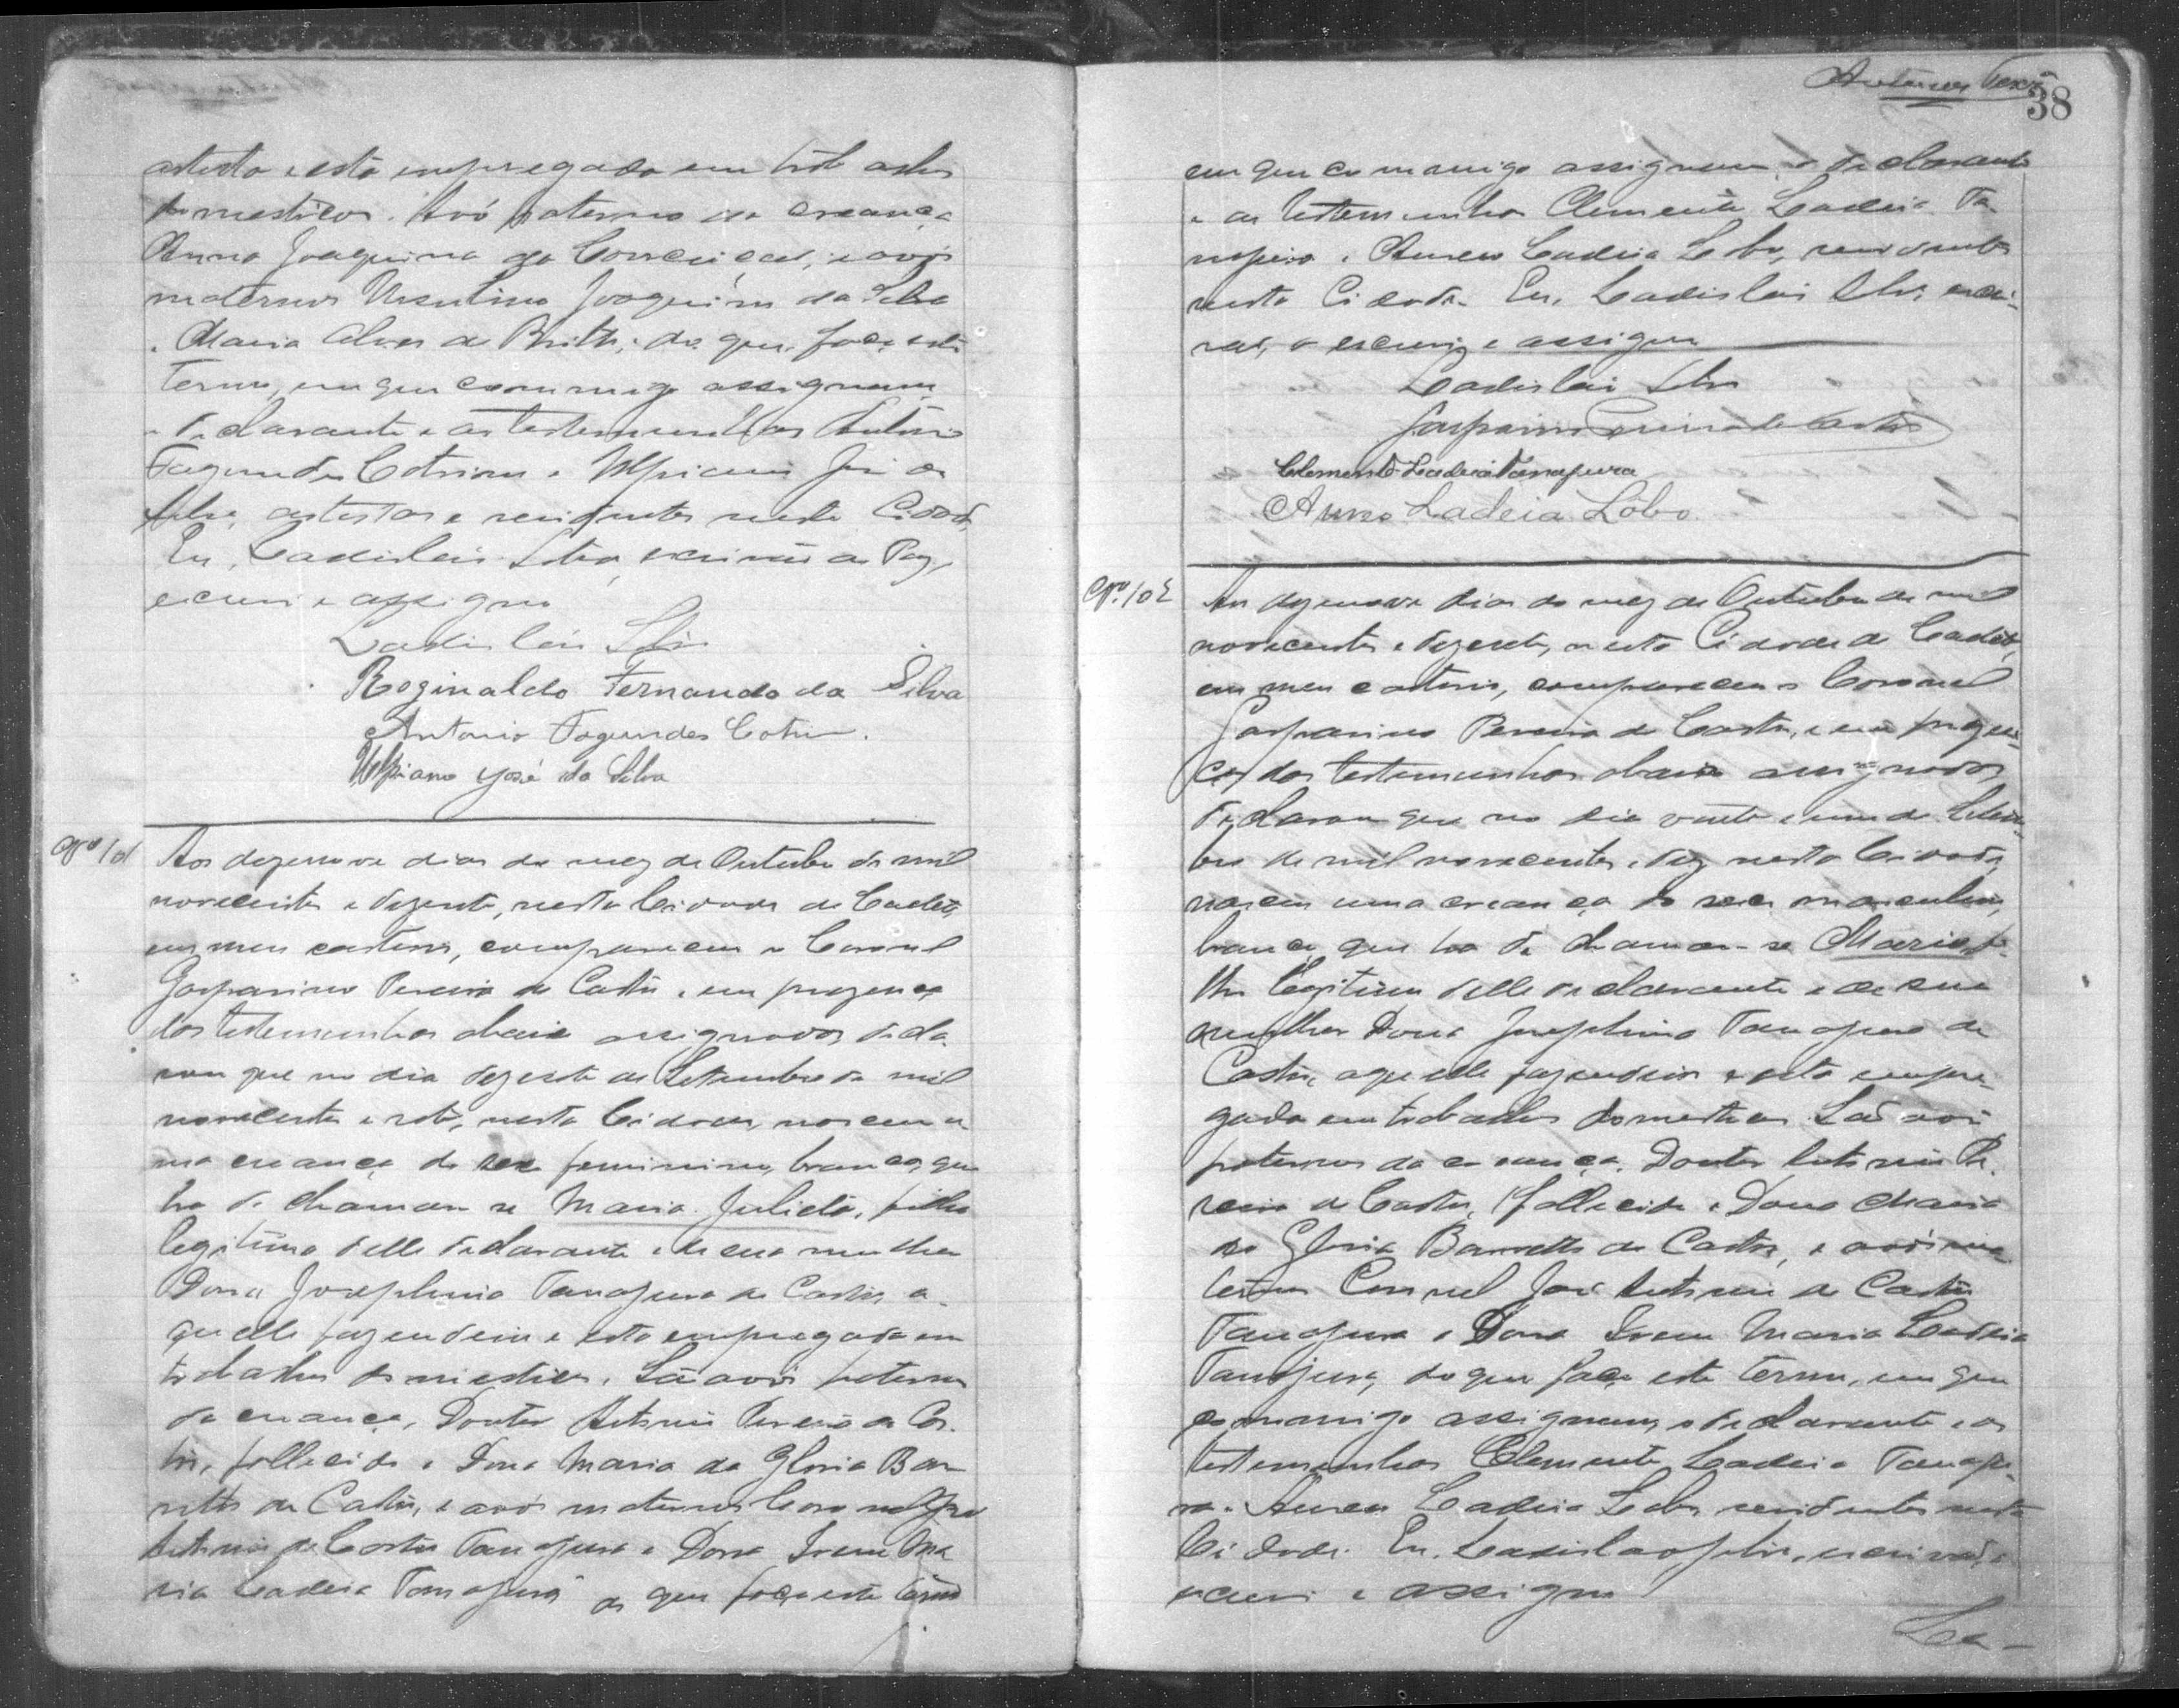 artista e esta empregada em trabalhos
domesticos. Avó paterna da creança
Anna Joaquina da Conceição, e avós
maternos Ursulino Joaquim da Silva
e Maria Alves de Britto; do que, faço este
termo, em que commigo assignam
o declarante e as testemunhas Antonio
Fagundes Cotrim e Ulpiano José da
Silva, artistas e residentes nesta Cidade.
Eu, Ladislau Silva, escrivão de Paz,
escrevi e assigno
Ladislau Silva
Reginaldo Fernando da Silva
Antonio Fagundes Cotrim.
Ulpiano José da Silva
Nº 101
Aos dezenove dias do mez de Outubro de mil
novecentos e dezesete, nesta Cidade de Caeteté,
em meu cartorio, compareceu o Coronel
Gasparino Pereira de Castro, e em prezença
das testemunhas abaixo assignadas decla-
rou que no dia dezesete de Setembro de mil
novecentos e sete, nesta Cidade, nasceu u-
ma creança do sexo feminino, branca, que
ha de chamar se Maria Julieta, filha
legitima delle declarante e de sua mulher
Dona Josephina Tanajura de Castro, a-
quelle fazendeiro e esta empregada em
trabalhos domesticos. São avós paternos
da creança, Doutor Antonio Pereira de Cas-
tro, fallecido e Dona Maria da Gloria Bar-
retto de Castro, e avós maternos Coronel José
Antonio de Castro Tanajura e Dona Irena Ma
ria Ladeia Tanajura do que faço este termo
Antunes
38
em que commigo assignam, o declarante
e as testemunhas Clemente Ladeia Ta-
najura e Aureo Ladeia Lobo, residentes
nesta Cidade. Eu, Ladislau Silva, escri-
vão, o escrevi e assigno
Ladislau Silva
Gasparino Pereira de Castro
Clemente Ladeia Tanajura
Aureo Ladeia Lôbo
Nº 102
Aos dezenove dias do mez de Outubro de mil
novecentos e dezesete, nesta Cidade de Caeteté,
em meu cartorio, compareceu o Coronel
Gasparino Pereira de Castro, e em prezen-
ça das testemunhas abaixo assignadas
declarou que no dia vinte e um de Setem-
bro de mil novecentos e dez nesta Cidade,
nasceu uma creança do sexo masculino,
branca, que ha de chamar-se Mario, fi-
lho legitimo delle declarante e de sua
mulher Dona Josephina Tanajura de
Castro, aquelle fazendeiro e esta empre-
gada em trabalhos domesticos. São avós
paternos da creança, Doutor Antonio Pe-
reira de Castro, fallecido e Dona Maria
da Gloria Barretto de Castro, e avós ma
ternos Coronel José Antonio de Castro
Tanajura e Dona Irena Maria Ladeia
Tanajura, do que faço este termo, em que
commigo assignam, o declarante e as
testemunhas Clemente Ladeia Tanaju-
ra e Aureo Ladeia Lobo, residentes nesta
Cidade. Eu, Ladislau Silva, escrivão, o
escrevi e assigno
La-